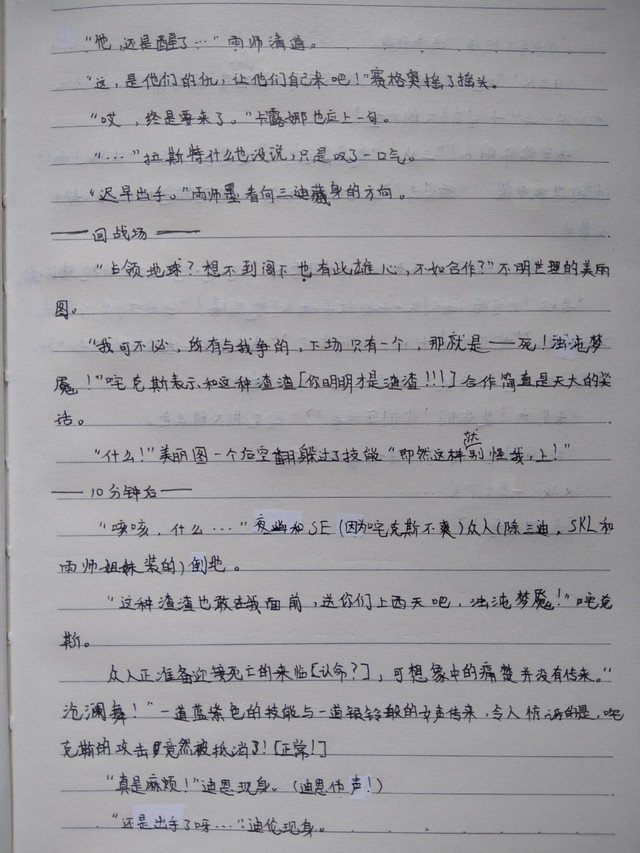 “他，还是醒了…”雨师清道。
“这，是他们的仇，让他们自己来吧！”赛格奥摇了摇头。
“哎，终是要来了。”卡露娜也应上一句。
“…”拉斯特什么也没说，只是叹了一口气。
“迟早出手。”雨师墨看向三迪藏身的方向。
——回战场——
“占领地球？想不到阁下也有此雄心，不如合作？”不明世理的美丽
图。
“我可不必，所有与我争的，下场只有一个，那就是——死！浊沌梦
魇！”咤克斯表示和这种渣渣[你明明才是渣渣！！！]合作简直是天大的笑
话。
“什么！”美丽图一个后空翻躲过了技能“即然这样别怪我，上！”
然
——10分钟后——
“咳咳，什么…”夜幽和SE（因为咤克斯不爽）众人（除三迪，SKL和
雨师姐妹装的）倒地。
“这种渣渣也敢在我面前，送你们上西天吧，浊沌梦魇！”咤克
斯。
众人正准备迎接死亡的来临[认命？]，可想象中的痛楚并没有传来。“
沧澜舞！”一道蓝紫色的技能与一道银铃般的女声传来，令人惊讶的是，咤
克斯的攻击竟然被抵消了！[正常！]
“真是麻烦！”迪恩现身。（迪恩伪声！）
“还是出手了呀…”迪伦现身。